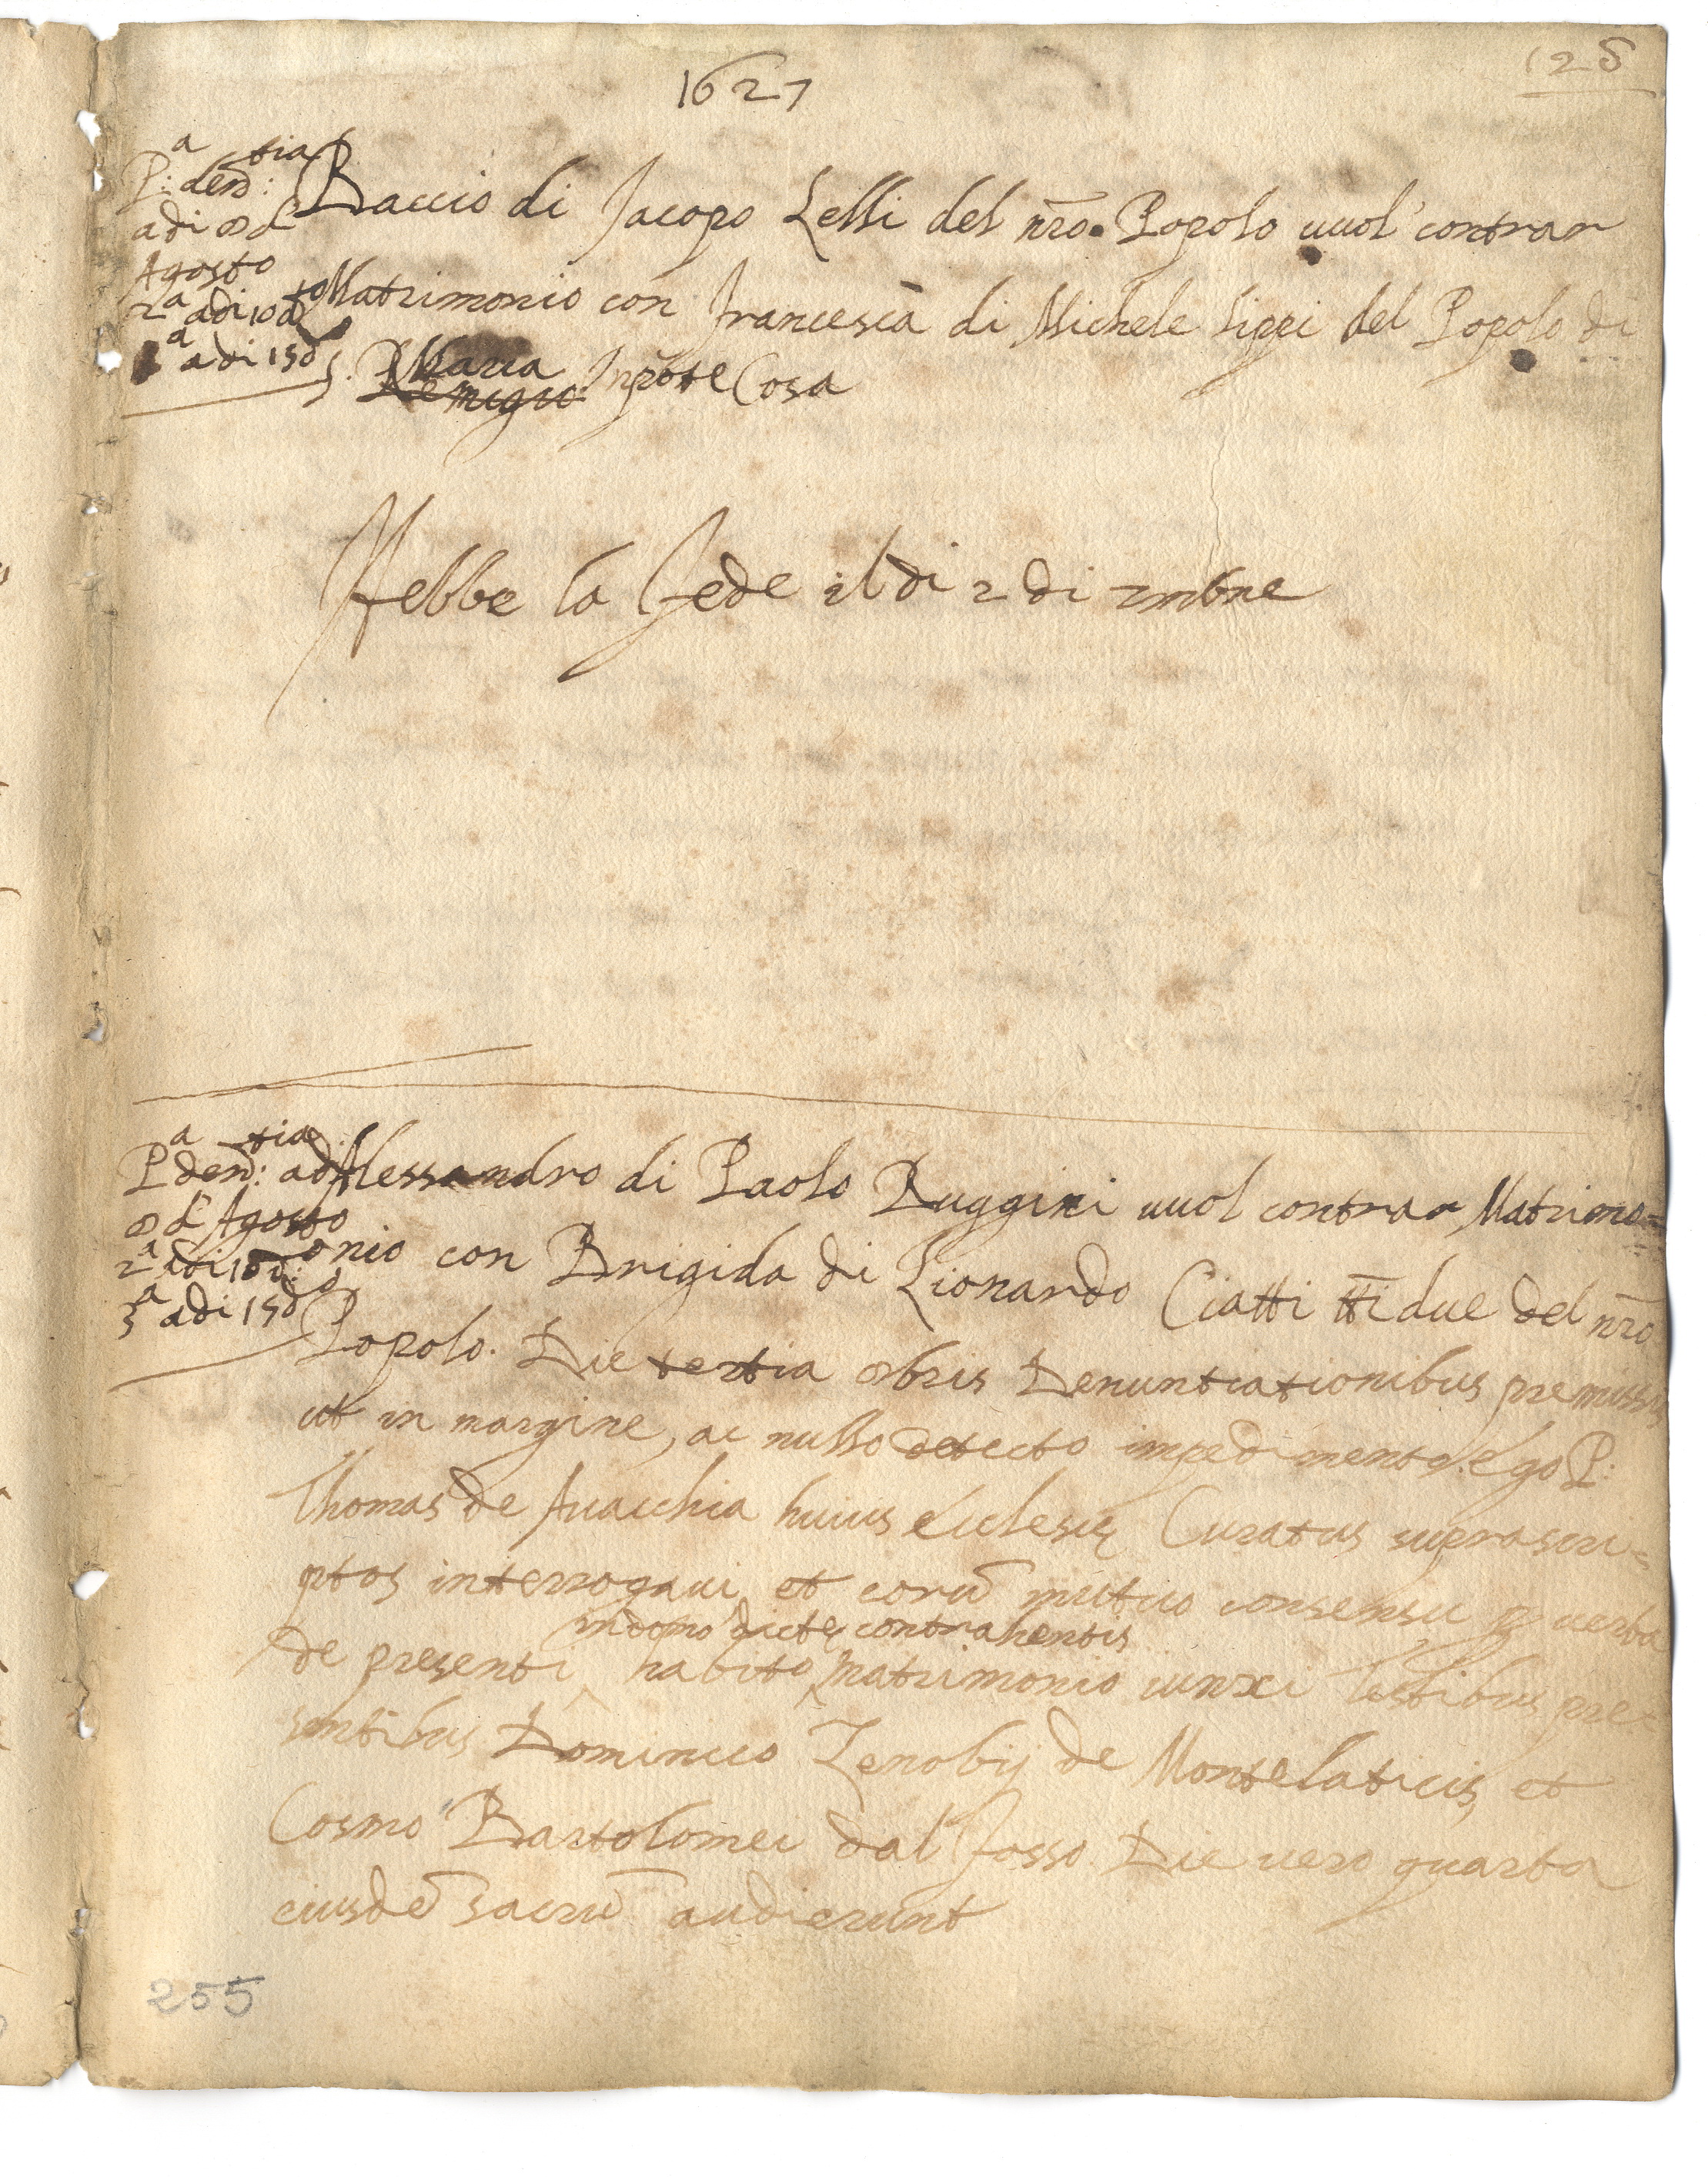 1627
128
P:a den:tia
adi 8 d'
Agosto
2a adi 10 do
3a adi 15 do
Baccio di Jacopo Lelli del nr̃o. Popolo vuol' contrar
Matrimonio con Francesca di Michele Lippi del Popolo di
S. Maria Inpote Cosa
Hebbe la Fede il di 2 di 7mbre
Pa den:tia adi
8 d' Agosto
2a adi 10 do
3a adi 15 do
Alessandro di Paolo Ruggini vuol contrar Matrimo=
onio con Brigida di Lionardo Ciatti tti due del nr̃o
Popolo. Die tertia 8bris Denuntiationibus premissis
ut in margine, ac nullo detecto impedimento. Ego P:
Thomas de Avacchia huius Ecclesię Curatus suprascri=
ptos interrogavi, et eorū mutuo consensu p verba
in domo dictę contrahentis
de presenti habito matrimonio iunxi testibus pre=
sentibus Dominico Zenobij de Montelaticis, et
Cosmo Bartolomei dal Fosso. Die vero quarta
eiusdē sacrū audierunt
255